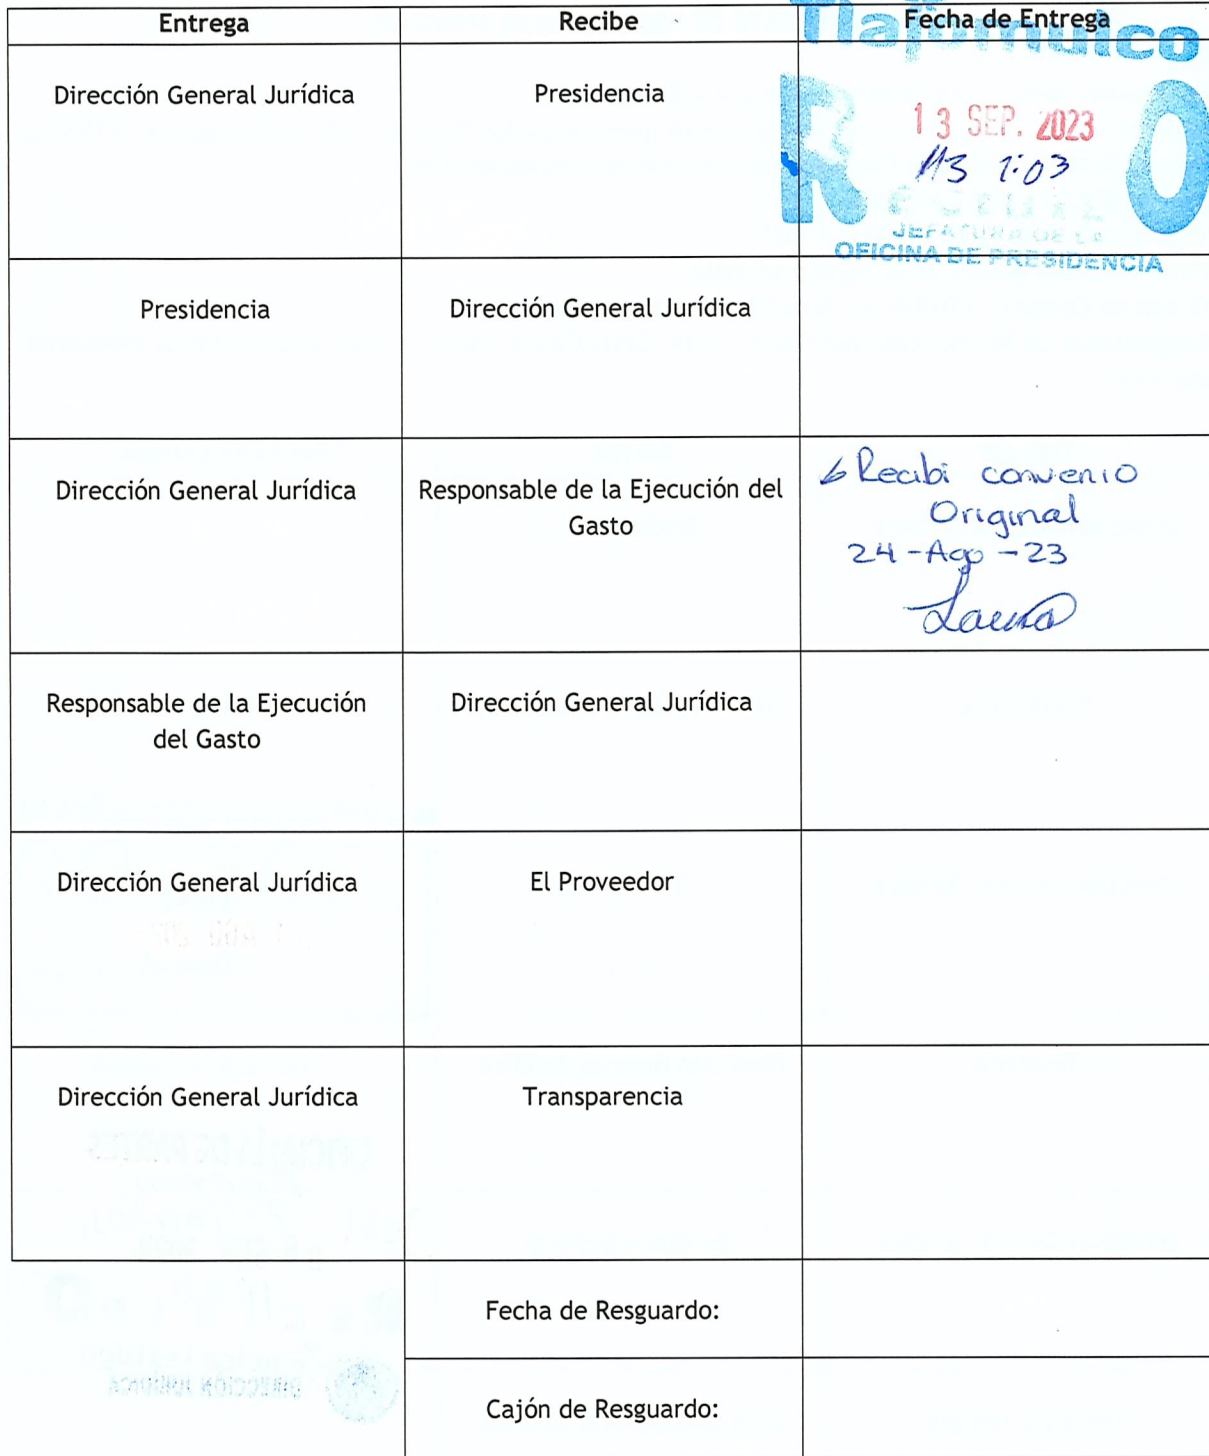 Entrega Recibe Fecha de Entrega
Tlajomulco
Dirección General Jurídica Presidencia
13 SEP. 2023
1:03
JEFATURA DE LA
OFICINA DE PRESIDENCIA
Presidencia Dirección General Jurídica
Dirección General Jurídica Responsable de la Ejecución del
Gasto
Recibi convenio
Original
24-Ago-23
Laura
Responsable de la Ejecución
del Gasto
Dirección General Jurídica
Dirección General Jurídica El Proveedor
Dirección General Jurídica Transparencia
Fecha de Resguardo:
Cajón de Resguardo: